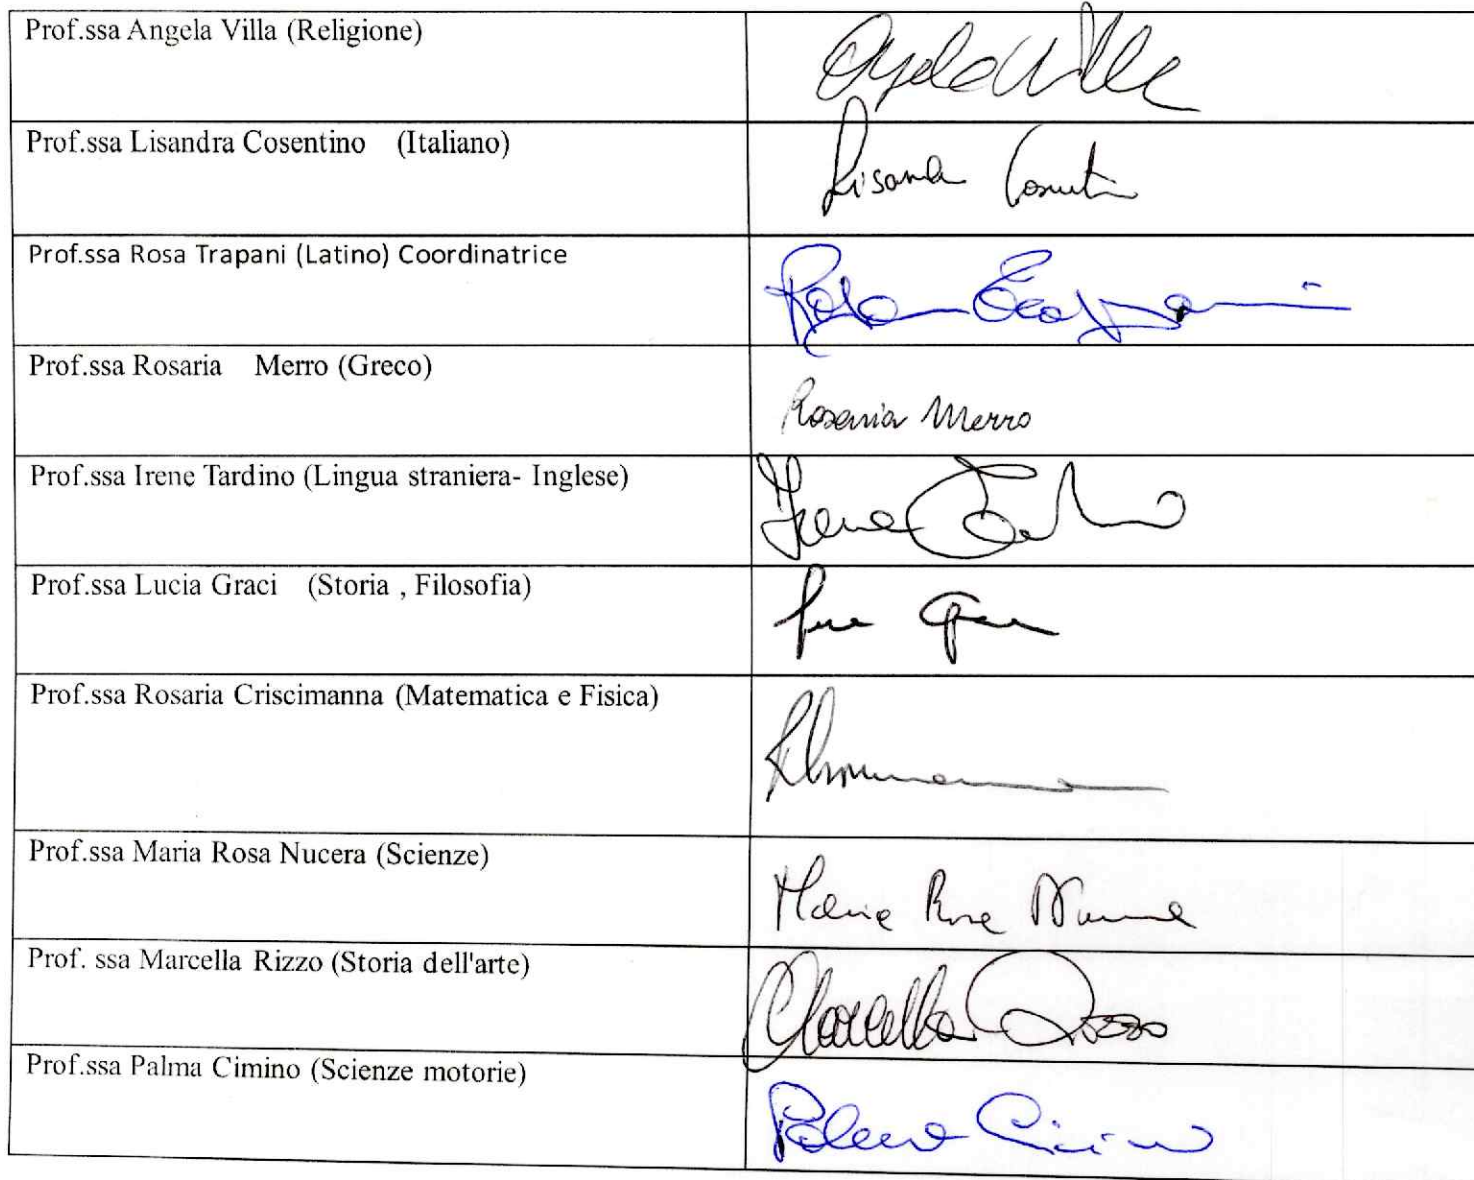 Prof.ssa Angela Villa (Religione)
Angela Villa
Prof.ssa Lisandra Cosentino (Italiano)
Lisandra Cosentino
Prof.ssa Rosa Trapani (Latino) Coordinatrice
Rosa Trapani
Prof.ssa Rosaria Merro (Greco)
Rosaria Merro
Prof.ssa Irene Tardino (Lingua straniera- Inglese)
Irene Tardino
Prof.ssa Lucia Graci (Storia , Filosofia)
Prof.ssa Rosaria Criscimanna (Matematica e Fisica)
Prof.ssa Maria Rosa Nucera (Scienze)
Maria Rosa Nucera
Prof. ssa Marcella Rizzo (Storia dell'arte)
Marcella Rizzo
Prof.ssa Palma Cimino (Scienze motorie)
Palma Cimino